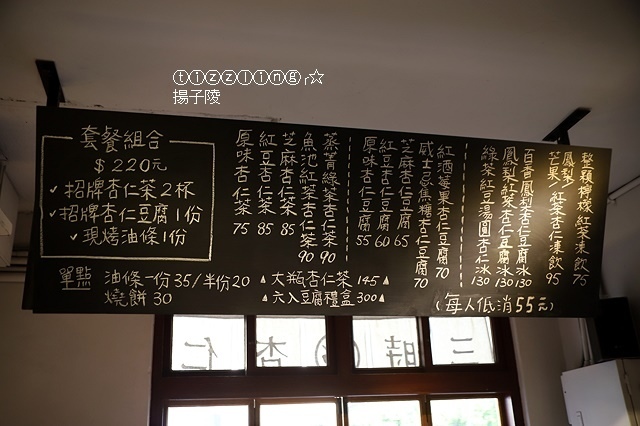 ⓣⓘⓩⓩⓛⓘⓝⓖ╭☆
揚子陵
套餐組合
$220元
✓招牌杏仁茶2杯
✓招牌杏仁豆腐1份
✓現烤油條1份
原味杏仁茶 75
紅豆杏仁茶 85
芝麻杏仁茶 85
魚池紅茶杏仁茶 90
蒸菁綠茶杏仁茶 90
原味杏仁豆腐 55
紅豆杏仁豆腐 60
芝麻杏仁豆腐 65
威士忌焦糖杏仁豆腐 70
紅酒莓果杏仁豆腐 70
綠茶紅豆湯圓杏仁冰 130
鳳梨紅茶杏仁豆腐冰 130
百香鳳梨杏仁豆腐冰 130
芒果/紅茶杏仁凍飲 95
鳳梨
整顆檸檬紅茶凍飲 75
單點 油條一份35/半份20
燒餅30
▲大瓶杏仁茶145▲
▲六入豆腐禮盒300▲
(每人低消55元)
三時杏仁